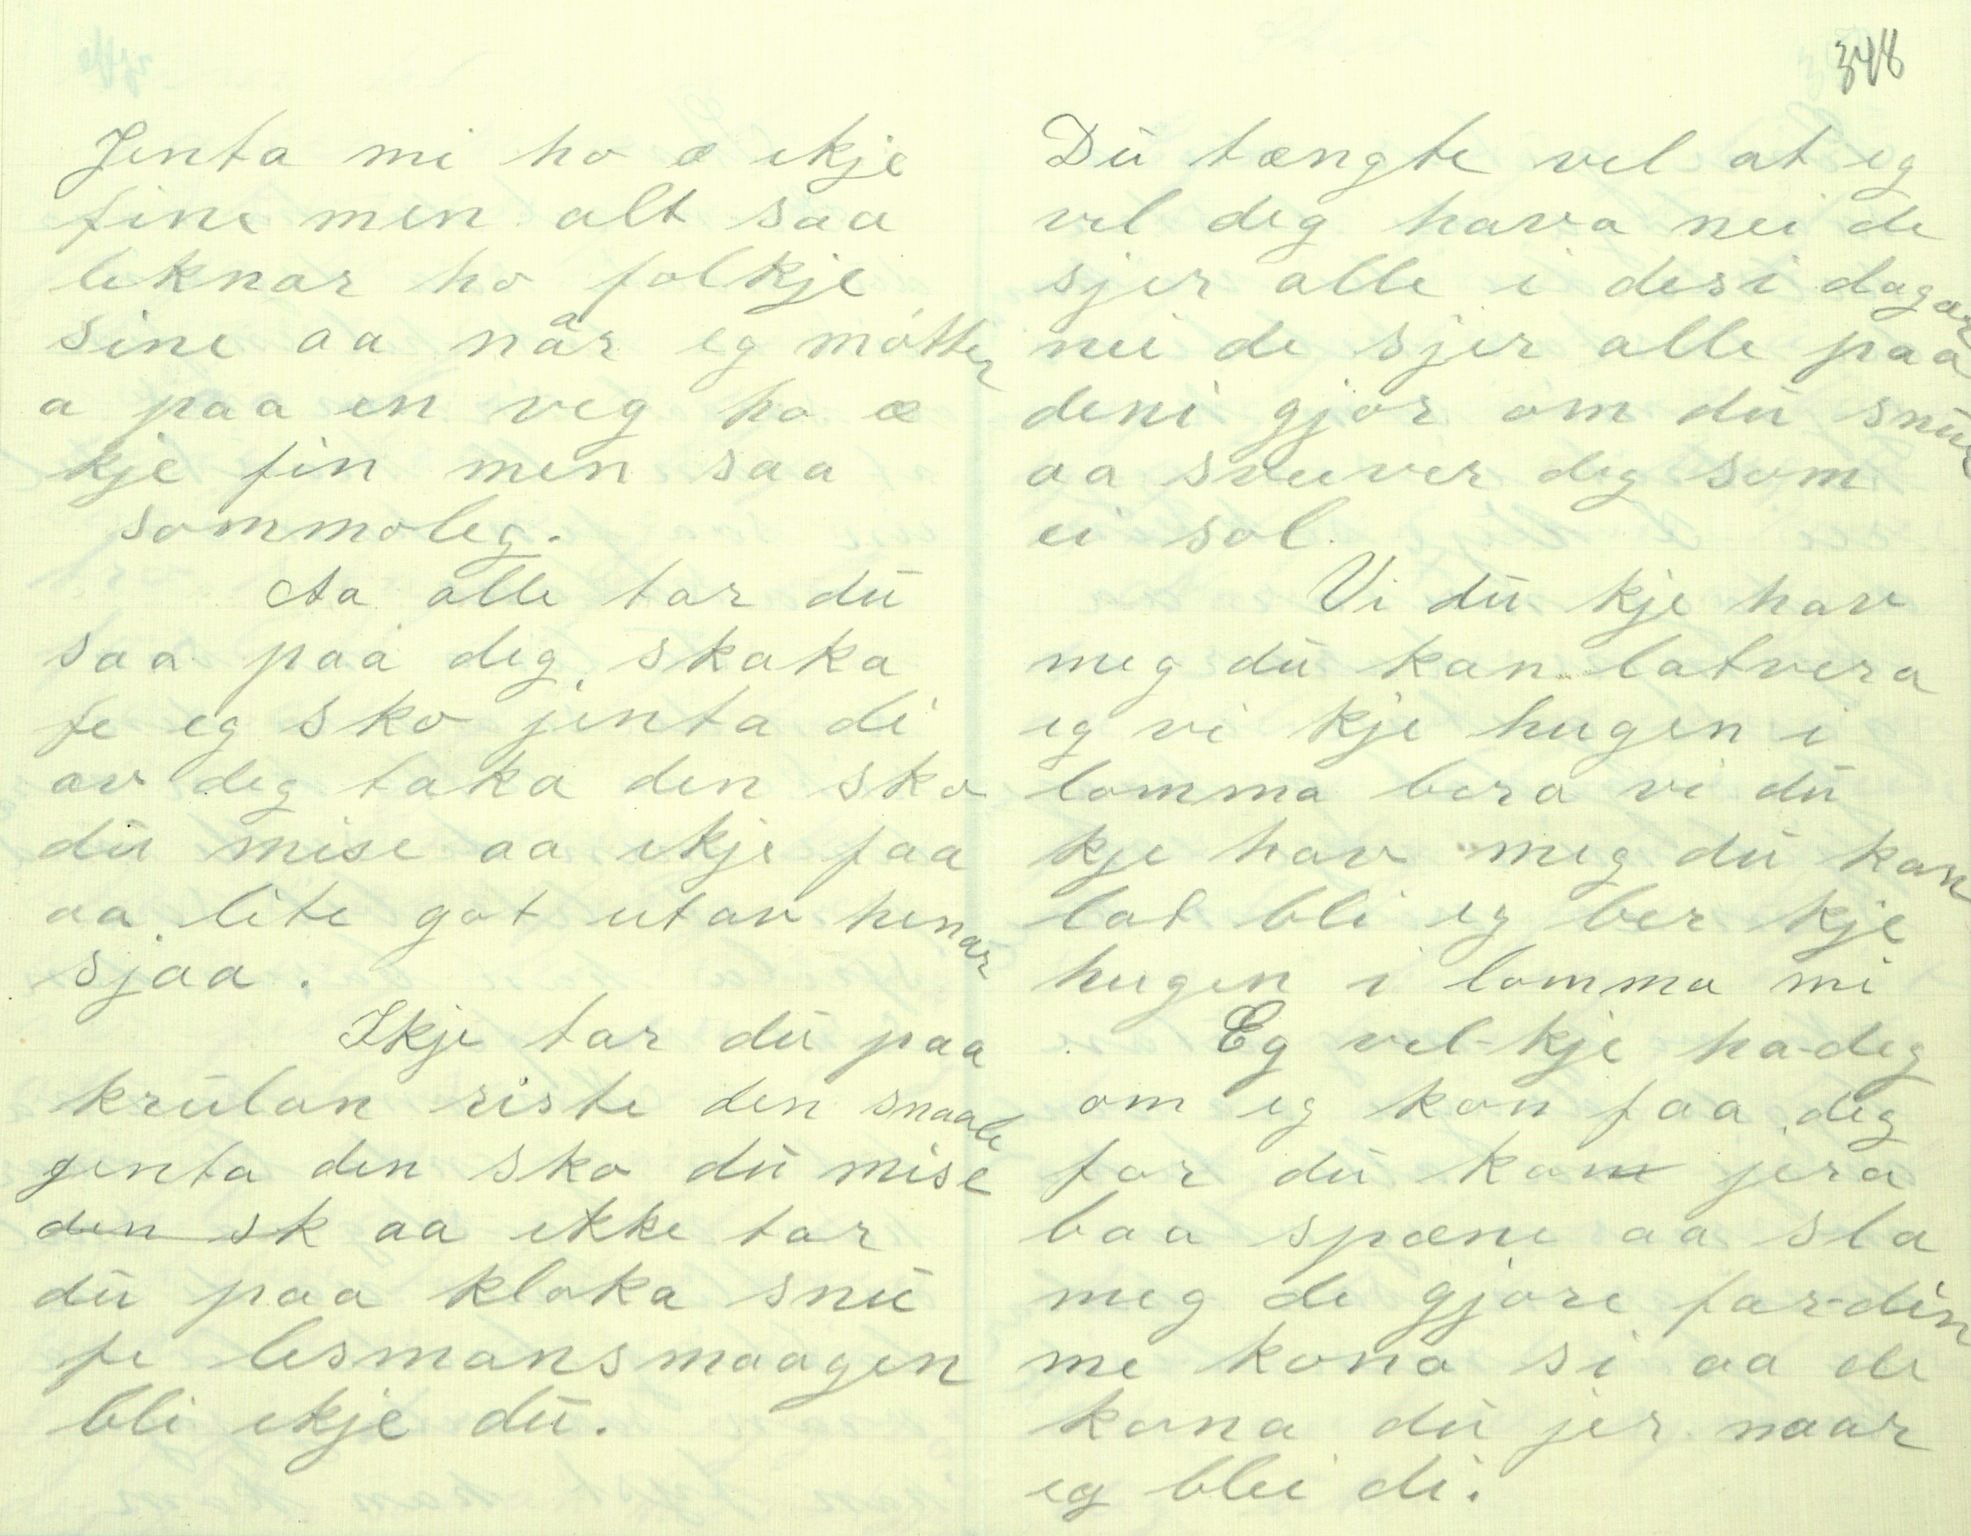 348
Jenta mi ho æ ikje
fine men alt saa
liknar ho folkje
sine aa når eg møtter
a paa en veg ho æ
kje fin men saa
sommoleg.
Aa alle tar du
saa paa deg skaka
fe eg sko jenta di
av deg taka den sko
du mise aa ikje faa
aa lite got utav henar
sjaa.
Ikje tar du paa
krulan riste den snaale
jenta den sko du mise
den sk aa ikke tar
du paa kloka snu
fe lesmansmaagen
bli ikje du.
Du tængte vel at eg
vil deg hava nei de
sjer alle i desi dagar
nei de sjer alle paa
deni gjor om du snur
aa sveiver deg som
ei sol.
Vi du kje hav
meg du kan latvera
eg vi kje hugen i
lomma bera vi du
kje hav meg du kan
lat bli eg ber kje
hugen i lomma mi
Eg vel-kje ha-deg
om eg kon faa deg
for du kan jera
baa spæne aa sla
meg de gjøre far-din
me kona si aa de
kona du jer naar
eg blei di.